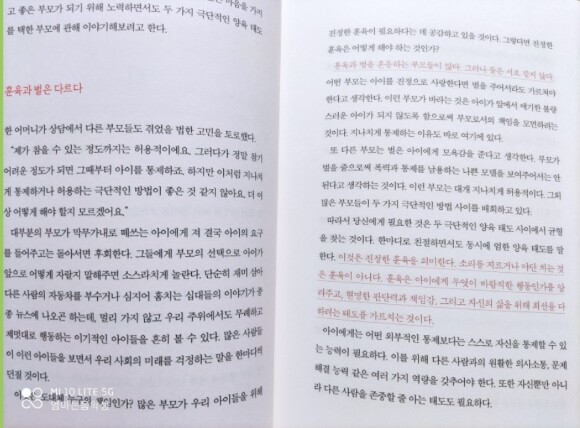 고 좋은 부모가 되기 위해 노력하면서도 두 가지 극단적인 양육 태도
를 택한 부모에 관해 이야기해보려고 한다.
훈육과 벌은 다르다
한 어머니가 상담에서 다른 부모들도 겪었을 법한 고민을 토로했다.
“제가 참을 수 있는 정도까지는 허용적이에요. 그러다가 정말 참기
어려운 정도가 되면 그때부터 아이를 통제하죠. 하지만 이처럼 지나치
게 통제하거나 허용하는 극단적인 방법이 좋은 것 같지 않아요. 더 이
상 어떻게 해야 할지 모르겠어요.”
대부분의 부모가 막무가내로 떼쓰는 아이에게 져 결국 아이의 요구
를 들어주고는 돌아서면 후회한다. 그들에게 부모의 선택으로 아이가
앞으로 어떻게 자랄지 말해주면 소스라치게 놀란다. 단순히 재미 삼아
다른 사람의 자동차를 부수거나 심지어 훔치는 십대들의 이야기가 종
종 뉴스에 나오곤 하는데, 멀리 가지 않고 우리 주위에서도 무례하고
제멋대로 행동하는 이기적인 아이들을 흔히 볼 수 있다. 많은 사람들
이 이런 아이들을 보면서 우리 사회의 미래를 걱정하는 말을 한마디씩
던질 것이다.
도대체 누구의 책임인가? 많은 부모가 우리 아이들을 위해
진정한 훈육이 필요하다는 데 공감하고 있을 것이다. 그렇다면 진정한
훈육은 어떻게 해야 하는 것인가?
훈육과 벌을 혼동하는 부모들이 많다. 그러나 둘은 서로 같지 않다.
어떤 부모는 아이를 진정으로 사랑한다면 벌을 주어서라도 가르쳐야
한다고 생각한다. 이런 부모가 바라는 것은 아이가 앞에서 얘기한 불량
스러운 아이가 되지 않도록 함으로써 부모로서의 책임을 모면하려는
것이다. 지나치게 통제하는 이유도 바로 여기에 있다.
또 다른 부모는 벌은 아이에게 모욕감을 준다고 생각한다. 부모가
벌을 줌으로써 폭력과 통제를 남용하는 나쁜 모델을 보여주어서는 안
된다고 생각하는 것이다. 이런 부모는 대개 지나치게 허용적이다. 그외
많은 부모들이 두 가지 극단적인 방법 사이를 배회하고 있다.
따라서 당신에게 필요한 것은 두 극단적인 양육 태도 사이에서 균형
을 찾는 것이다. 한마디로 친절하면서도 동시에 엄한 양육 태도를 말
한다. 이것은 진정한 훈육을 의미한다. 소리를 지르거나 야단 치는 것
은 훈육이 아니다. 훈육은 아이에게 무엇이 바람직한 행동인가를 알
려주고, 현명한 판단력과 책임감, 그리고 자신의 삶을 위해 최선을 다
하려는 태도를 가르치는 것이다.
아이에게는 어떤 외부적인 통제보다는 스스로 자신을 통제할 수 있
는 능력이 필요하다. 이를 위해 다른 사람과의 원활한 의사소통, 문제
해결 능력 같은 여러 가지 역량을 갖추어야 한다. 또한 자신뿐만 아니
라 다른 사람을 존중할 줄 아는 태도도 필요하다.
MI 10 LITE 5G